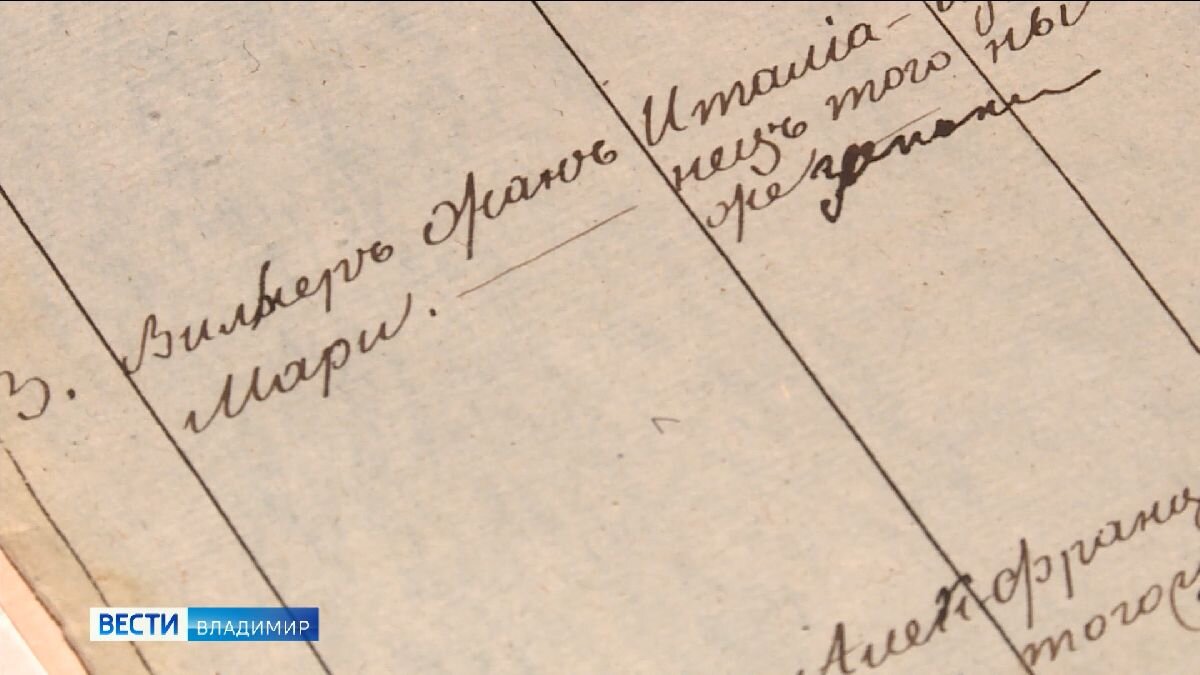 3. Вильеръ Жанъ
Мари.
Италіа-
нецъ того
же
ны
Алек
Франц
того
ВЕСТИ ВЛАДИМИР